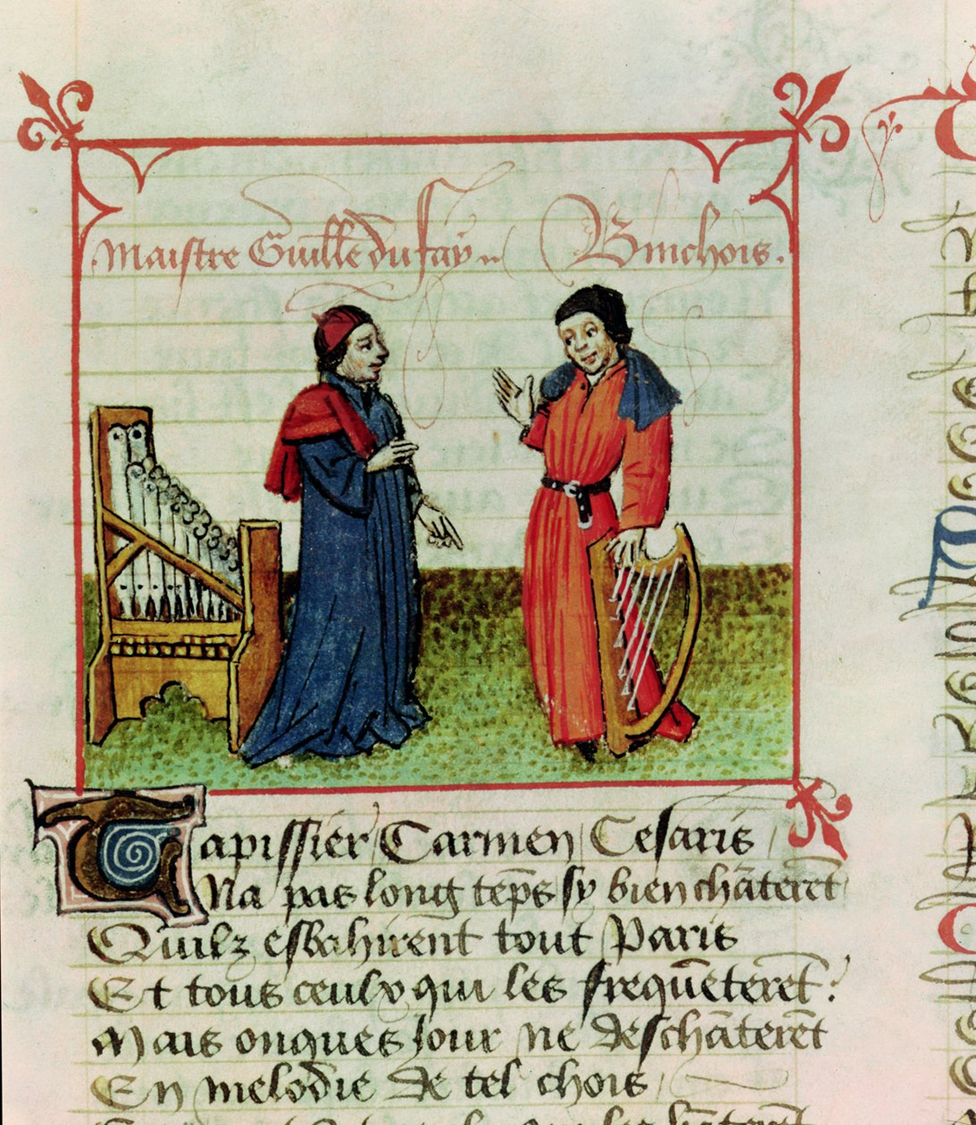 Maistre Guille du fay Binchois.
Tapissier / Carmen / Cesaris /
Na pas long tēps sy bien chāterēt
Quilz esbahirent tout Paris
Et tous ceulx qui les frequēterēt:
Mais onques Jour ne deschāterēt
En melodie de tel chois /